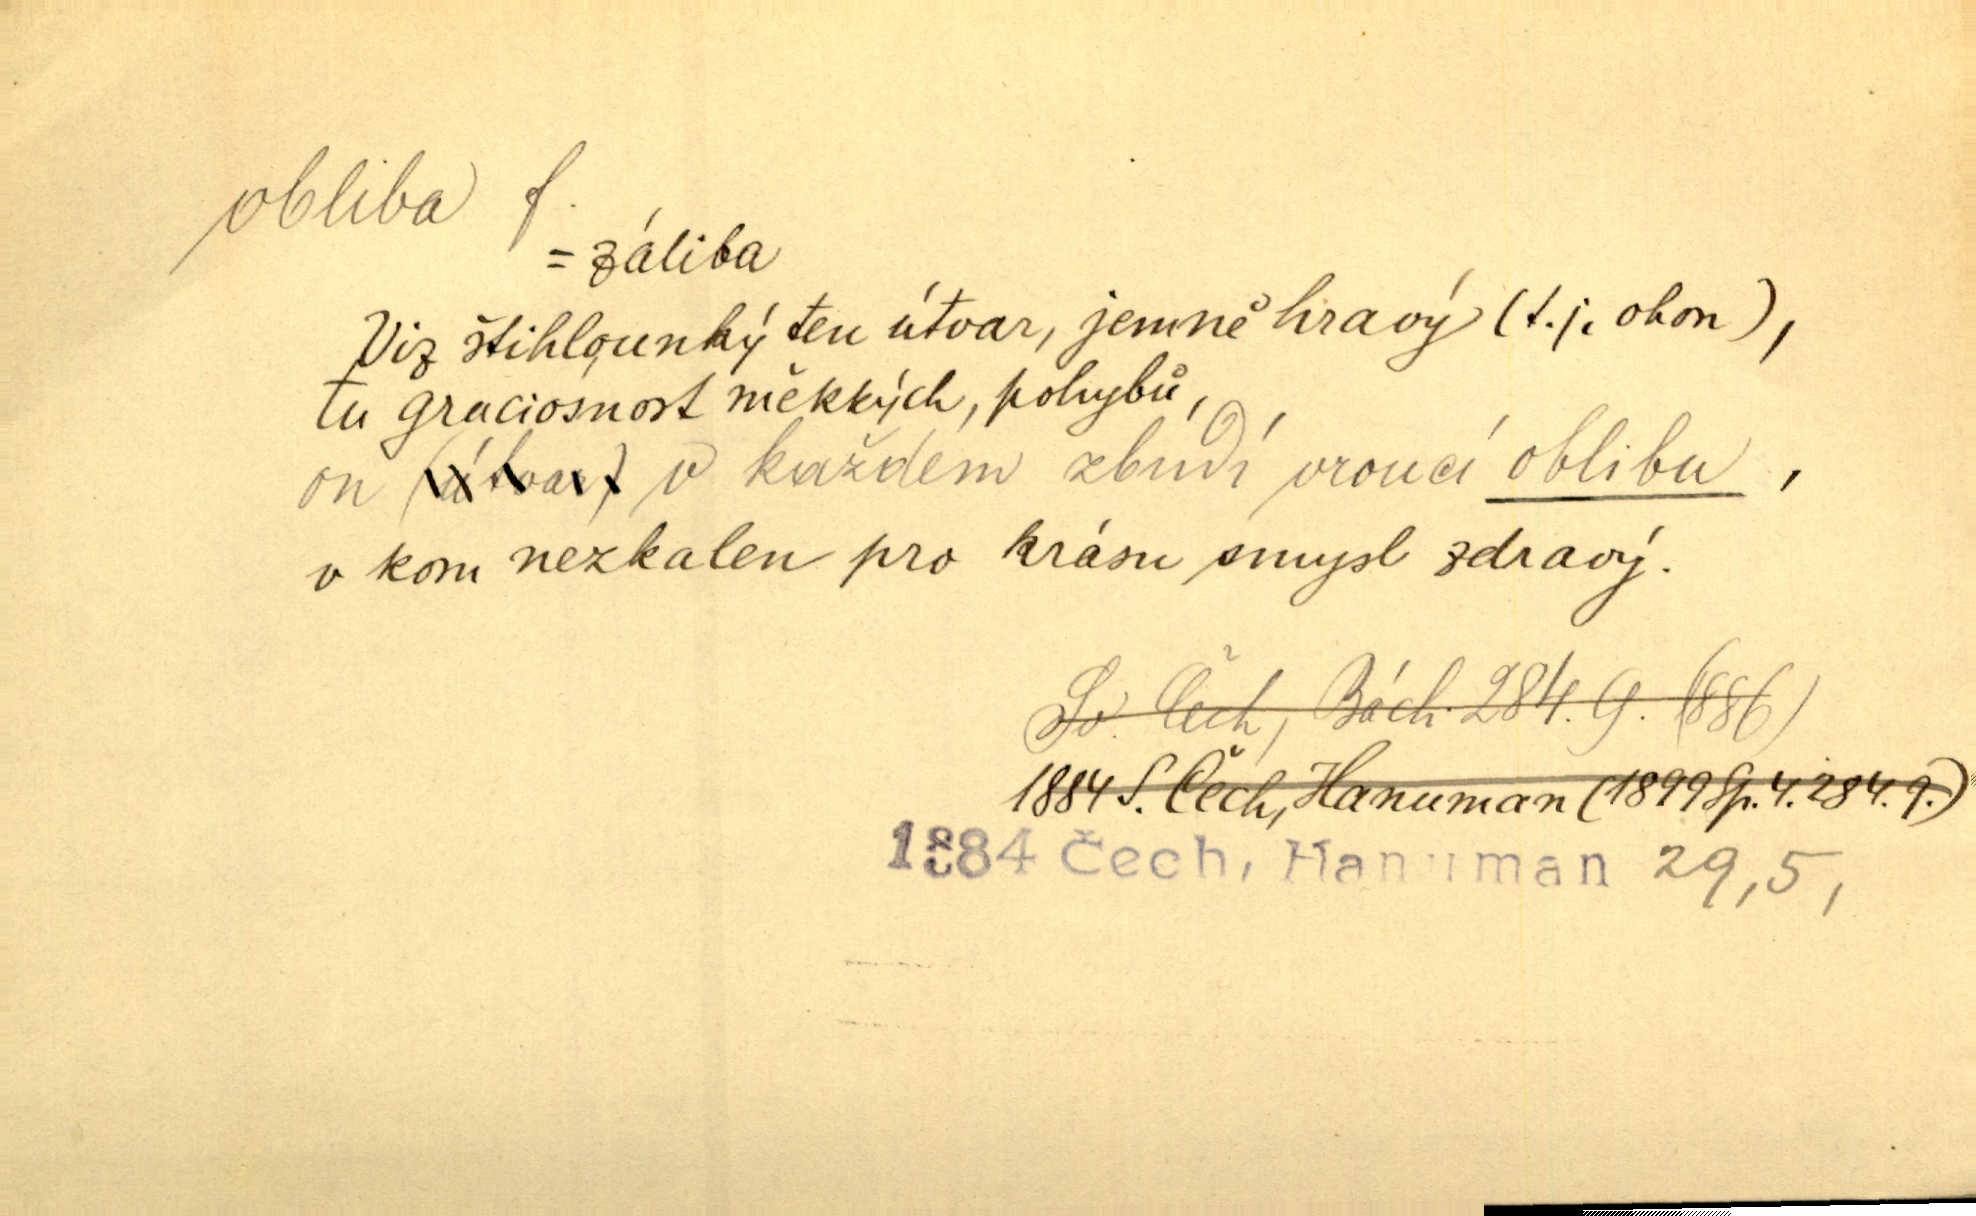 obliba f.
= záliba
Viz štihlounký ten útvar, jemně hravý (t.j. ohon),
tu graciosnost měkkých, pohybů,
on (útvar) v každém zbudí vroucí oblibu,
v kom nezkalen pro krásu smysl zdravý.
Sv. Čech, Bách. 284. 9. (886)
1884 S. Čech, Hanuman (1899 Sp. 4. 284. 9.)
1884 Čech, Hanuman 29,5,